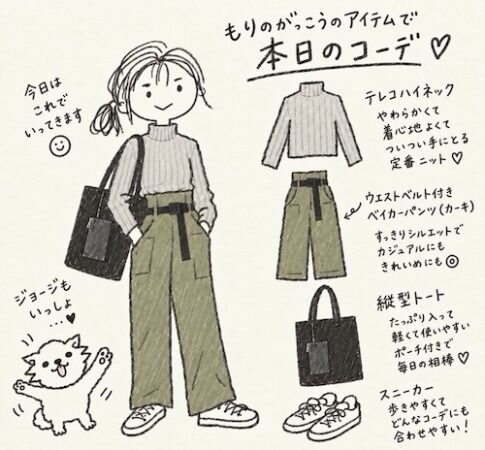 もりのがっこうのアイテムで
本日のコーデ♡
今日は
これで
いってきます
テレコハイネック
やわらかくて
着心地よくて
ついつい手にとる
定番ニット♡
ウエストベルト付き
ベイカーパンツ(カーキ)
すっきりシルエットで
カジュアルにも
きれいめにも◎
ジョージも
いっしょ
…♥
縦型トート
たっぷり入って
軽くて使いやすい
ポーチ付きで
毎日の相棒♡
スニーカー
歩きやすくて
どんなコーデにも
合わせやすい!